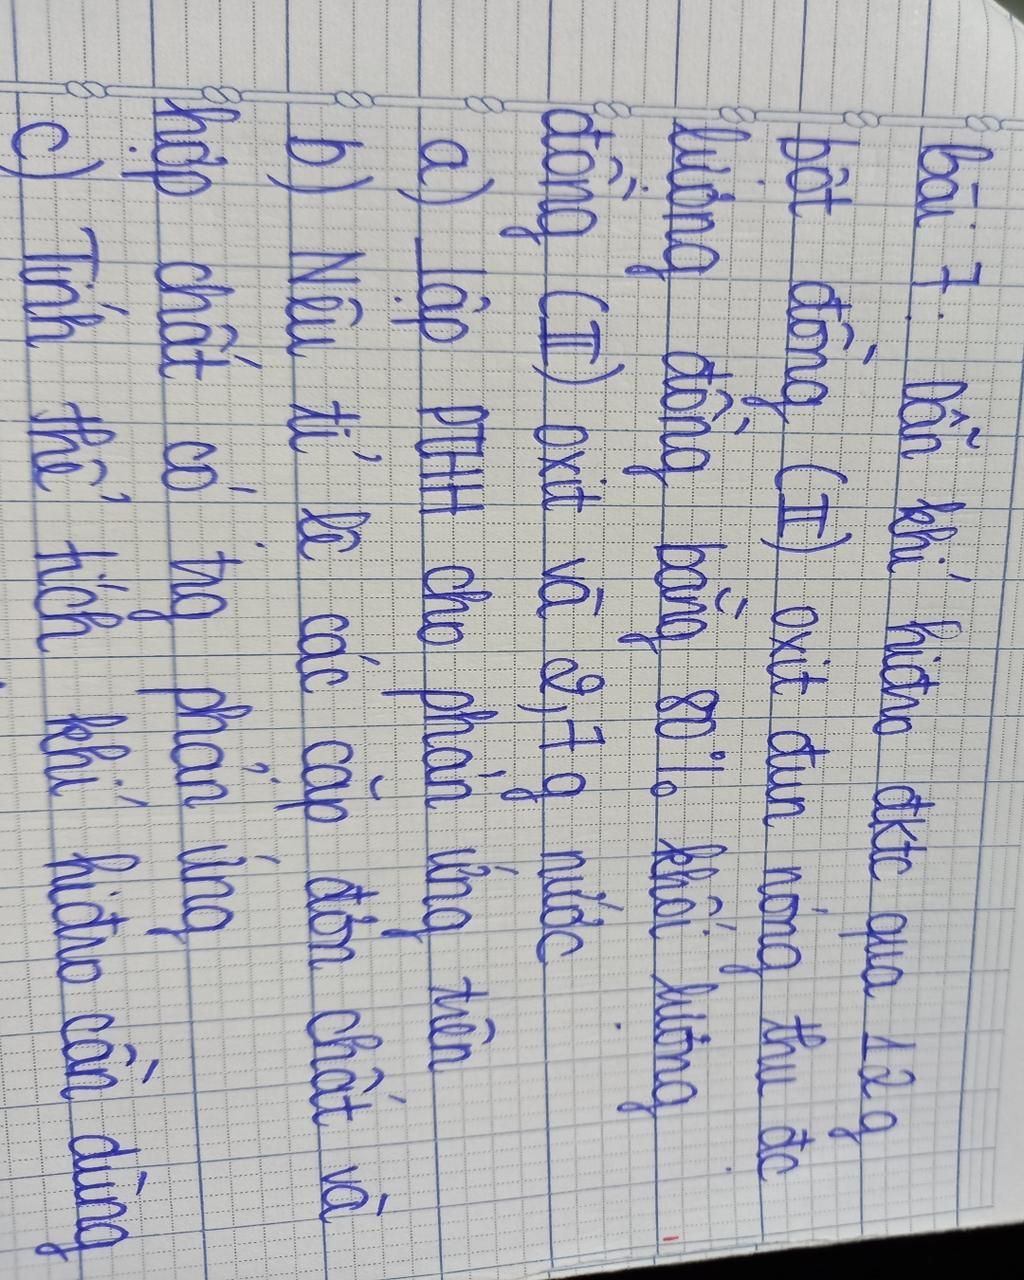 bài 7. Dẫn khí hiđro đktc qua 12g
bột đồng (II) oxit đun nóng thu đc
lượng đồng bằng 80% khối lượng
đồng (II) oxit và 2,7g nước
a) Lập PTHH cho phản ứng trên
b) Nêu tỉ lệ các cặp đơn chất và
hợp chất có trg phản ứng
c) Tính thể tích khí hiđro cần dùng